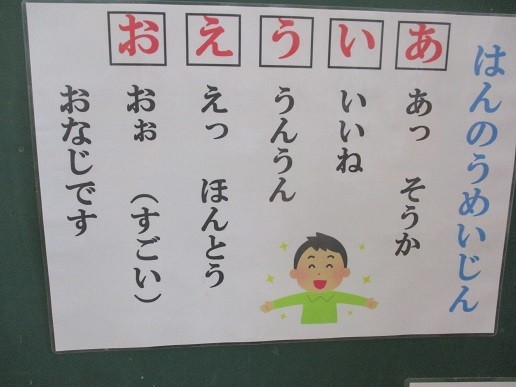 はんのうめいじん
あ あっ そうか
い いいね
う うんうん
え えっ ほんとう
お おぉ (すごい)
おなじです